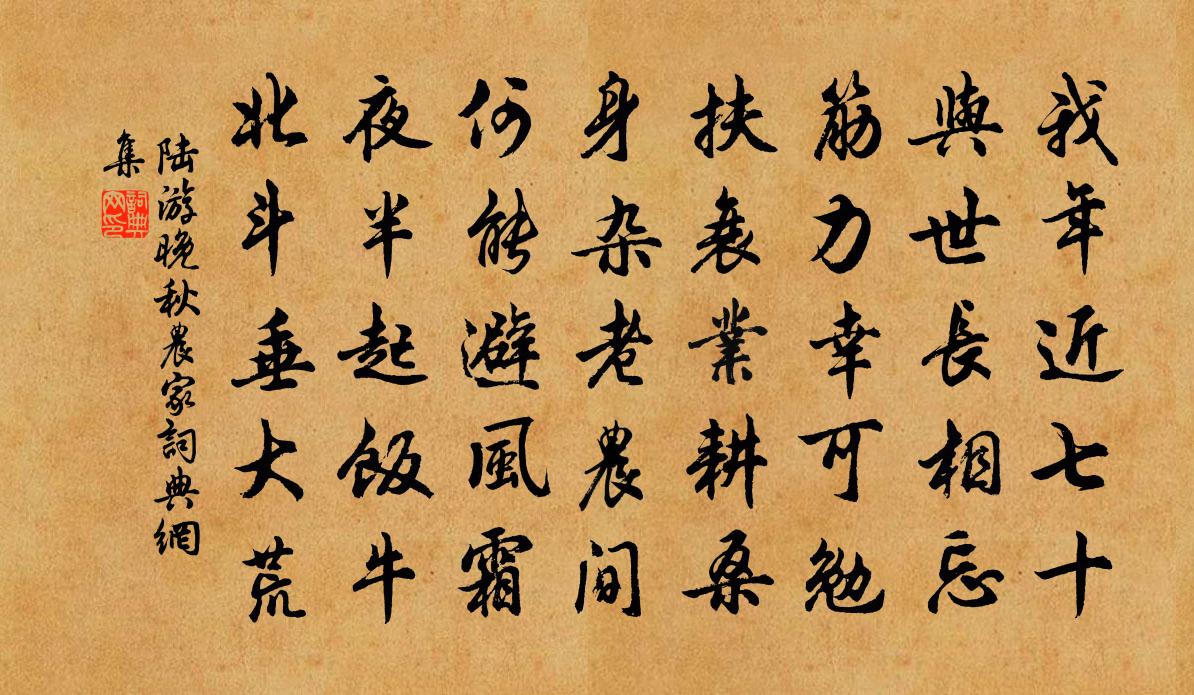 我年近七十
與世長相忘
筋力幸可勉
扶衰業耕桑
身杂老農间
何能避風霜
夜半起飯牛
北斗垂大荒
陆游晚秋農家詞典網
集
詞典
网印